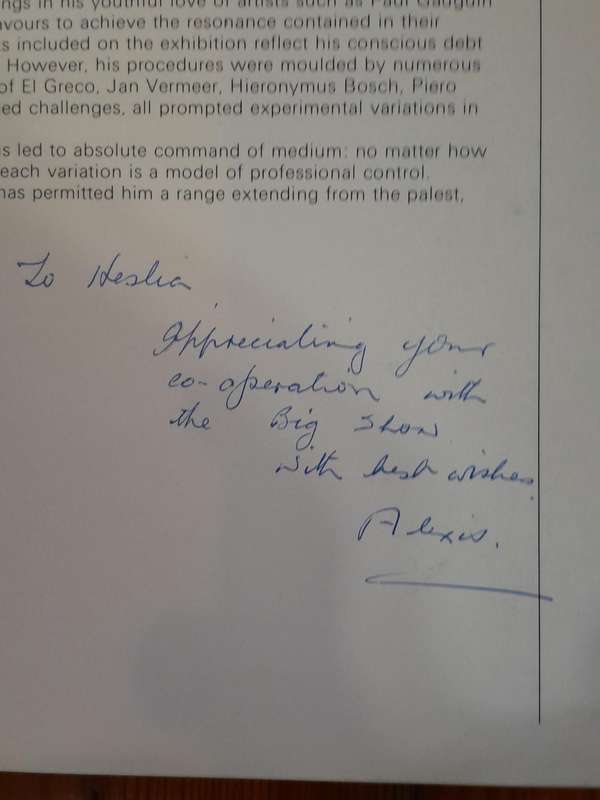 ings in his youthful love of artists such as Paul Gauguin
avours to achieve the resonance contained in their
s included on the exhibition reflect his conscious debt
However, his procedures were moulded by numerous
of El Greco, Jan Vermeer, Hieronymus Bosch, Piero
ed challenges, all prompted experimental variations in
s led to absolute command of medium: no matter how
each variation is a model of professional control.
has permitted him a range extending from the palest,
To Heslia
Appreciating your
co-operation with
the Big Show
With best wishes.
Alexis.